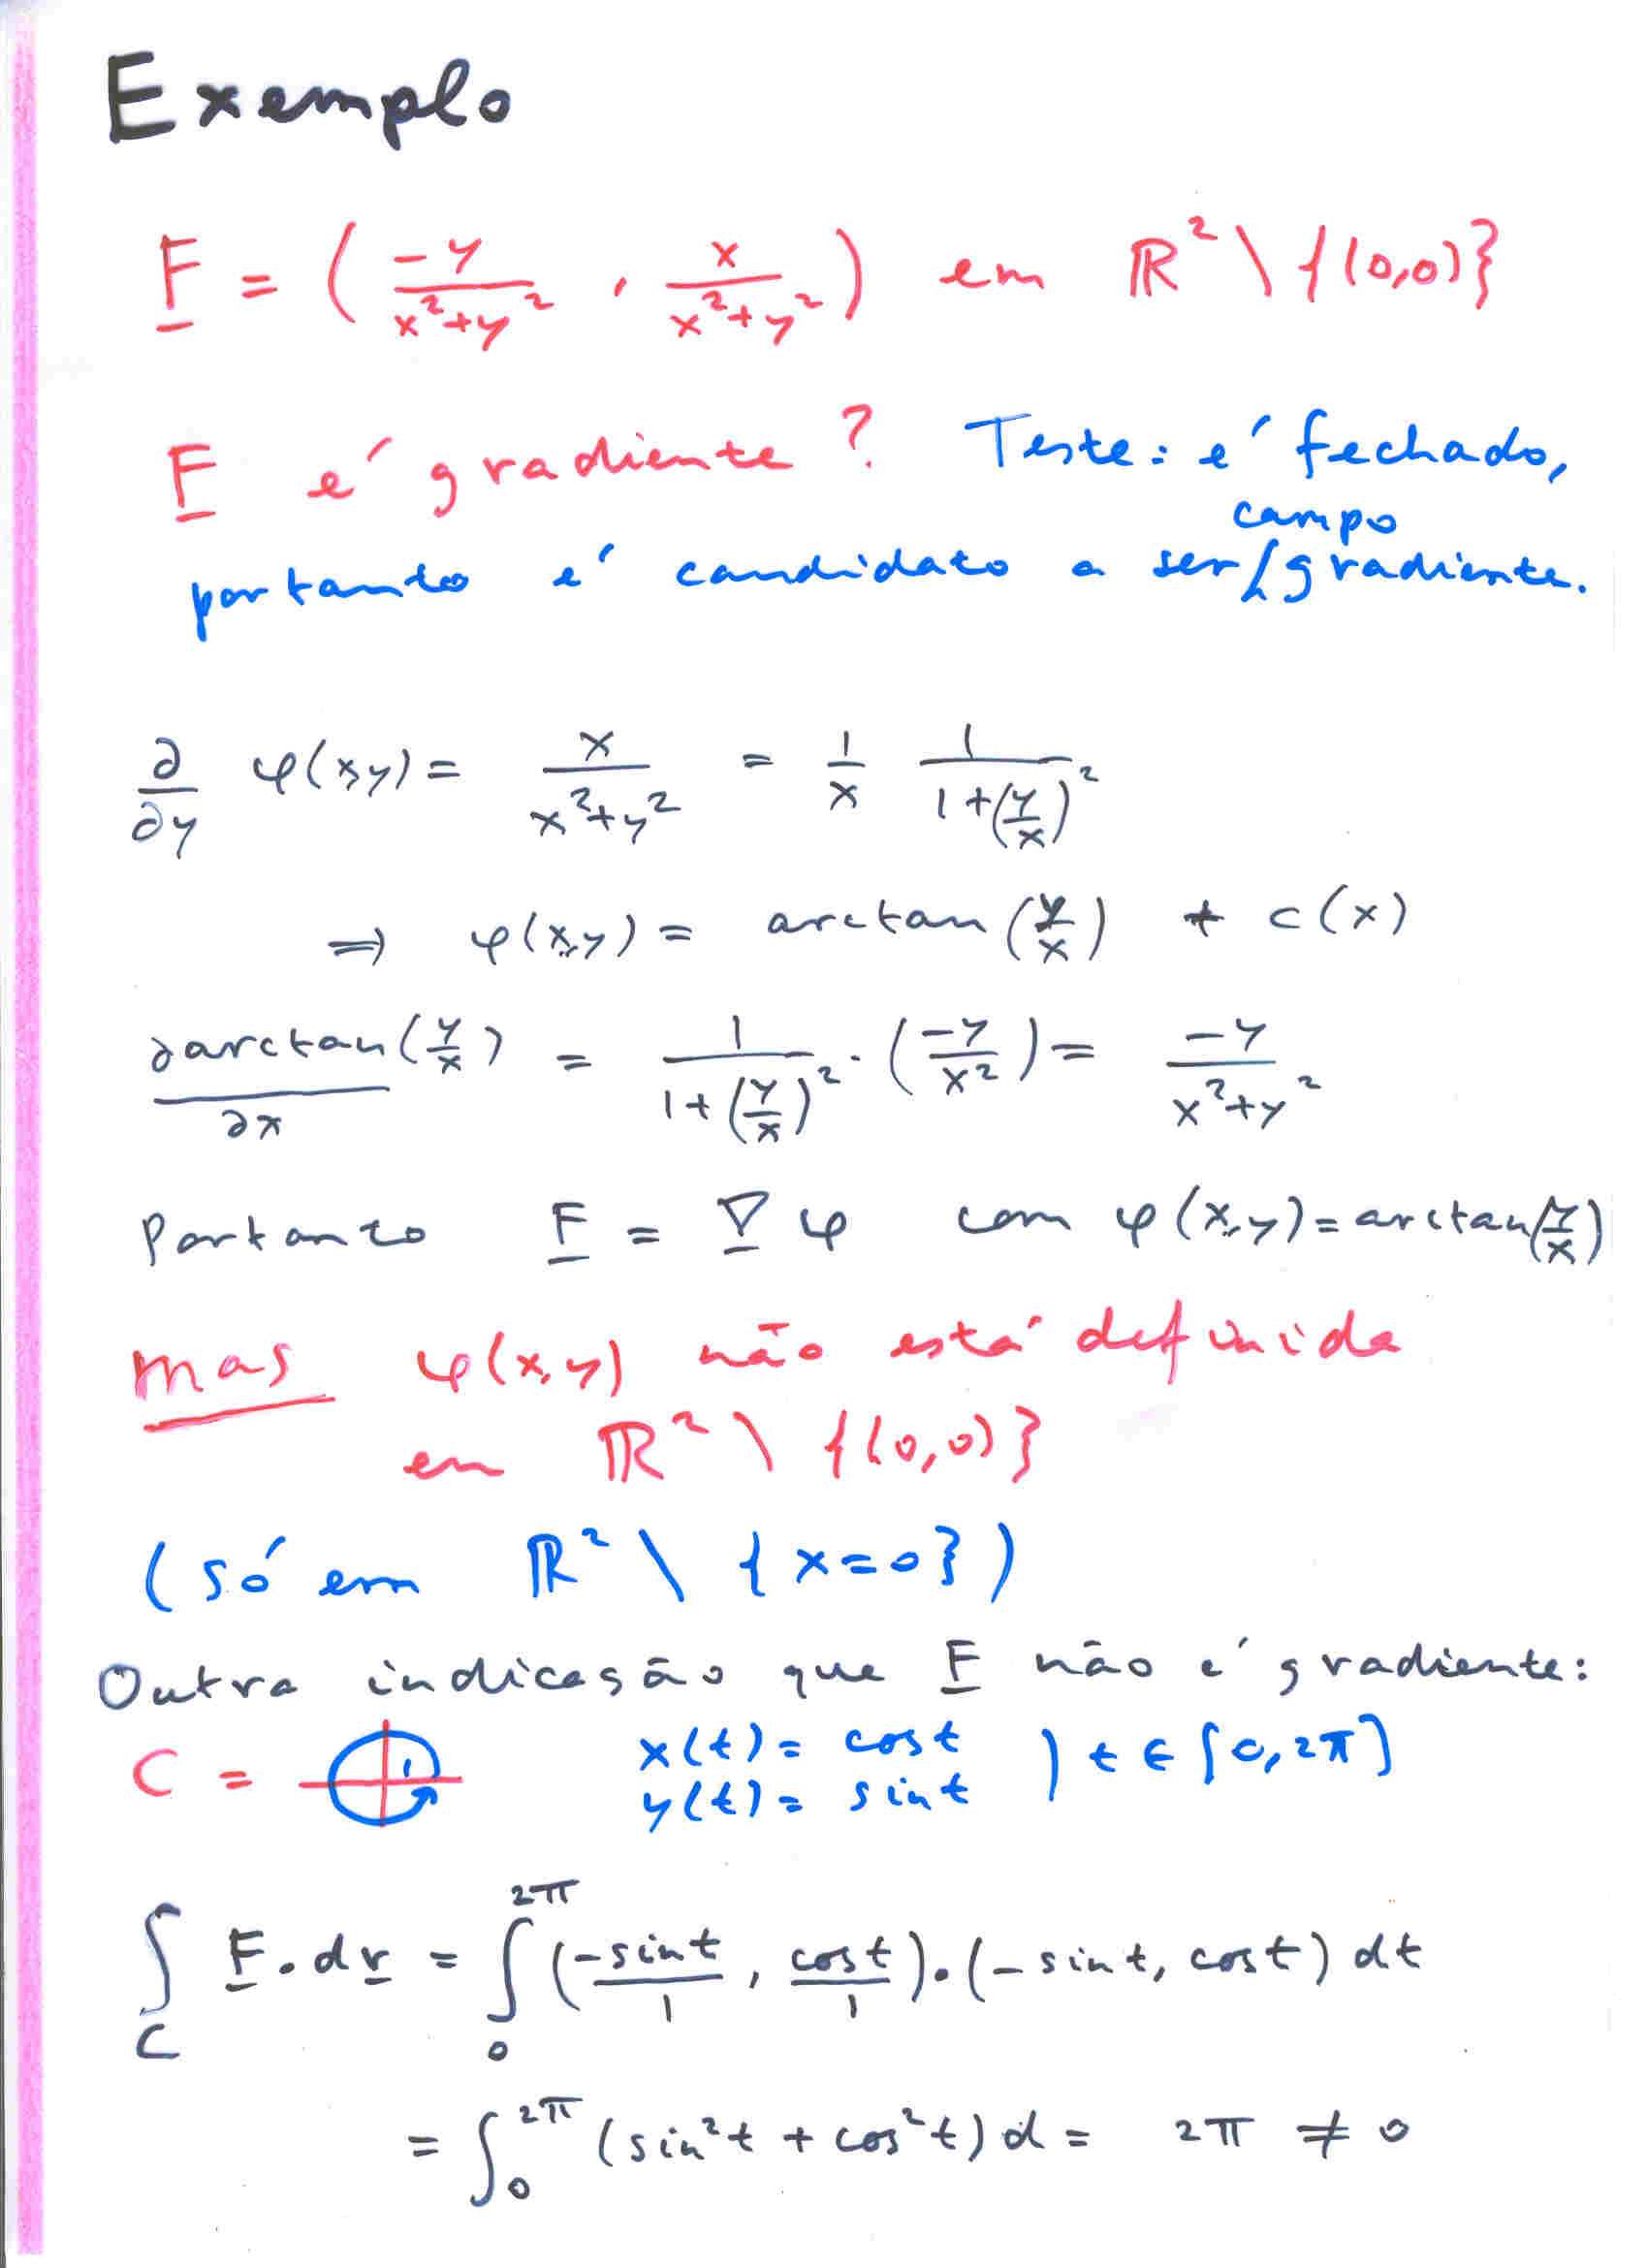 Exemplo
F = ( -y/(x²+y²) , x/(x²+y²) ) em ℝ² \ {(0,0)}
F é gradiente? Teste: é fechado,
campo
portanto é candidato a ser / gradiente.
∂/∂y φ(x,y) = x/(x²+y²) = 1/x 1/(1+(y/x)²)
⇒ φ(x,y) = arctan(y/x) + c(x)
∂arctan(y/x)/∂x = 1/(1+(y/x)²) · (-y/x²) = -y/(x²+y²)
Portanto F = ∇φ com φ(x,y) = arctan(y/x)
mas φ(x,y) não está definida
em ℝ² \ {(0,0)}
(só em ℝ² \ {x=0})
Outra indicação que F não é gradiente:
C = 1 x(t) = cos t ) t ∈ [0,2π]
y(t) = sin t
∫_C F·dr = ∫_0^{2π} (-sin t/1, cos t/1)·(-sin t, cos t) dt
= ∫_0^{2π} (sin²t + cos²t) d = 2π ≠ 0